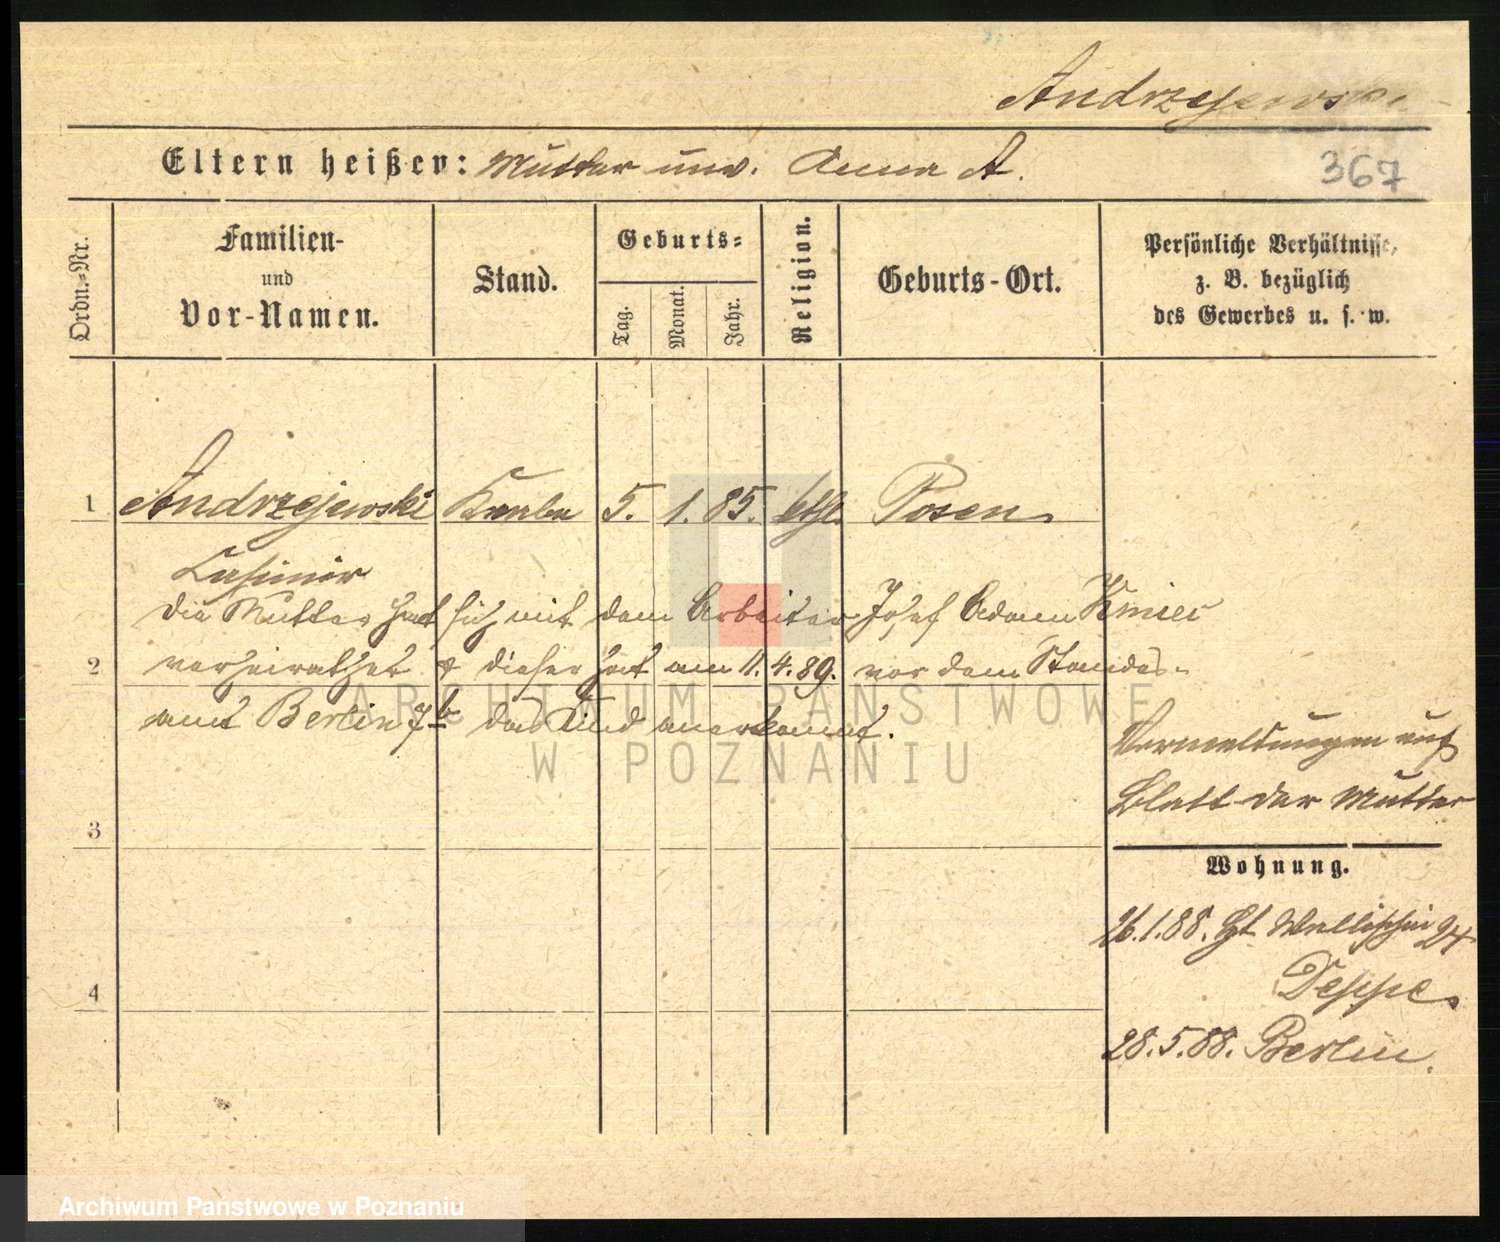 Andrzejewski
Eltern heißen: Mutter unv. Anna A.
367
Ordn.-Nr.
Familien-
und
Vor-Namen.
Stand.
Geburts-
Tag.
Monat.
Jahr.
Religion.
Geburts-Ort.
Persönliche Verhältnisse,
z. B. bezüglich
des Gewerbes u. s. w.
1 Andrzejewski Knabe 5. 1. 85. kthl. Posen
Casimir
Die Mutter hat sich mit dem Arbeiter Josef Adam Kmiec
2 verheirathet & dieser hat am 11.4.89. vor dem Standes-
amt Berlin 7b das Kind anerkannt.
Vermeldungen auf
Blatt der Mutter
3
Wohnung.
26.1.88. Wallischei 24
Deppe
4
28.5.88. Berlin.
ARCHIWUM PAŃSTWOWE
W POZNANIU
Archiwum Państwowe w Poznaniu